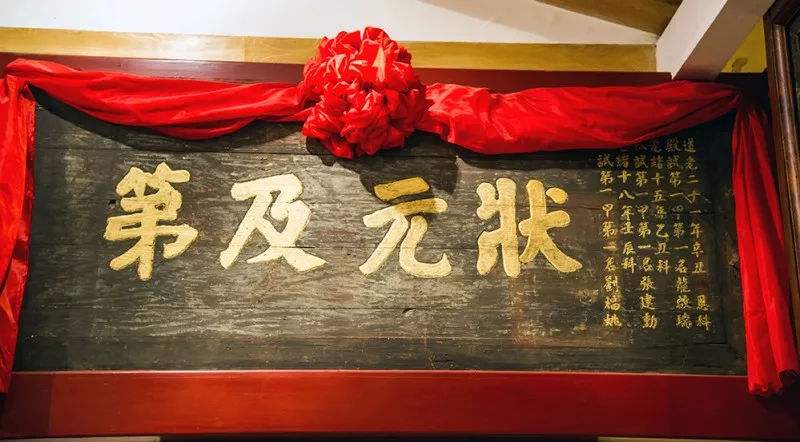 狀元及第
道光二十一年辛丑恩科
殿試第一甲第一名龍啟瑞
光緒十五年己丑科
試第一甲第一名張建勳
緒十八年壬辰科
試第一甲第一名劉福姚